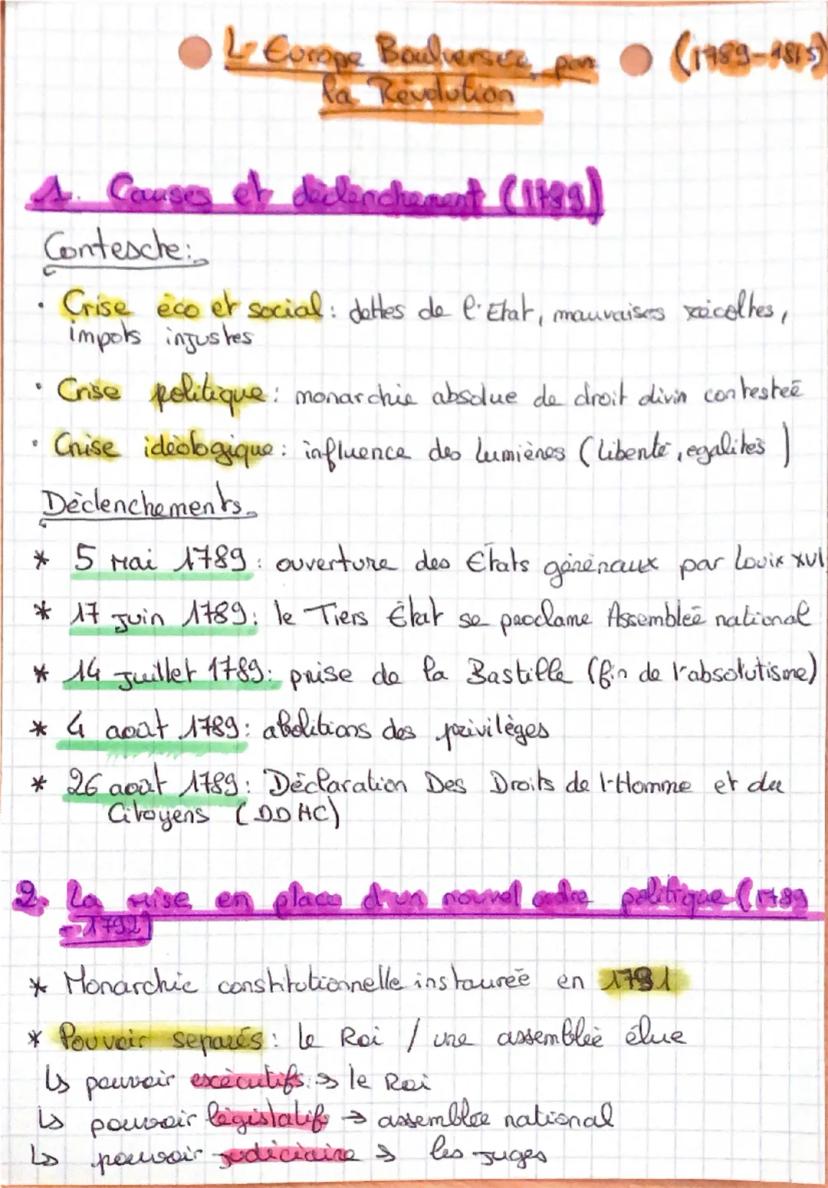 L'Europe Boulversée par (1789-1815)
la Révolution
1. Causes et déclenchement (1789)
Contexte :
• Crise éco et social : dettes de l'Etat, mauvaises récoltes,
impots injustes
• Crise politique : monarchie absolue de droit divin contesteé
• Crise idéologique : influence des Lumières (liberté, egalités)
Déclenchements
* 5 Mai 1789 : ouverture des États généraux par Louis XVI
* 17 Juin 1789 : le Tiers État se proclame Assembleé national
* 14 Juillet 1789 : prise de la Bastille (fin de l'absolutisme)
* 4 août 1789 : abolitions des privilèges
* 26 août 1789 : Déclaration Des Droits de l'Homme et du
Citoyens (DDHC)
2. La mise en place d'un nouvel ordre politique (1789
- 1792)
* Monarchie constitutionnelle instaureé en 1791
* Pouvoir separés : Le Roi / une assembleé élue
↳ pouvoir exécutifs → le Roi
↳ pouvoir législatifs → assemblée national
↳ pouvoir judiciaire → les juges